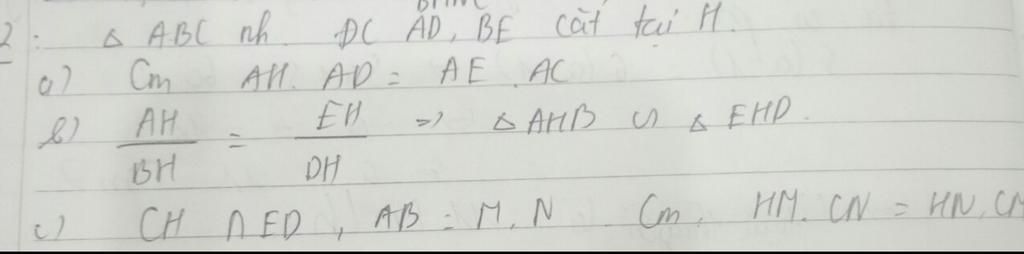 2: Δ ABC nh. DC AD, BE cắt tại H.
a) Cm AH. AD = AE. AC
b) AH/BH = EH/DH => Δ AHB ∽ Δ EHD.
c) CH ∩ ED, AB = M, N Cm. HM. CN = HN. CM